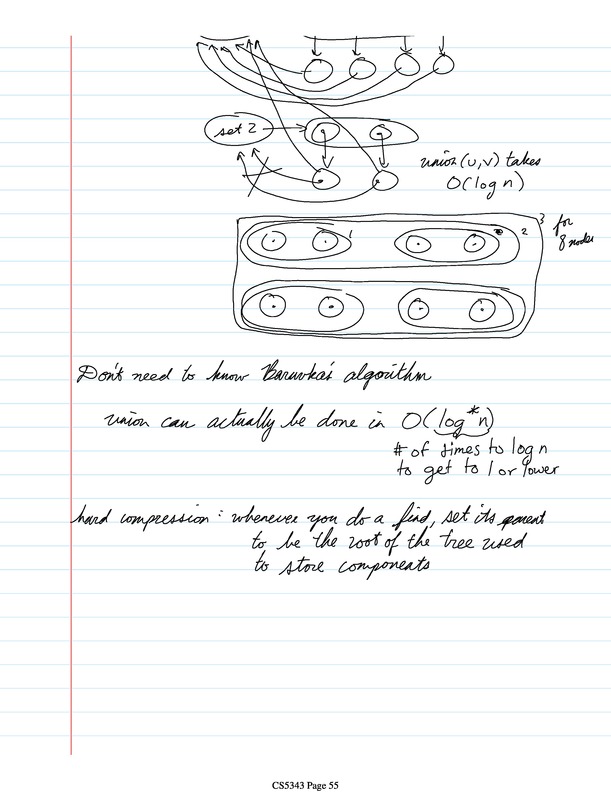 set 2
union (u,v) takes
O(log n)
1
2
3
for
8 nodes
Don't need to know Baruvka's algorithm
union can actually be done in O(log* n)
# of times to log n
to get to 1 or lower
hard compression : whenever you do a find, set its parent
to be the root of the tree used
to store components
CS5343 Page 55